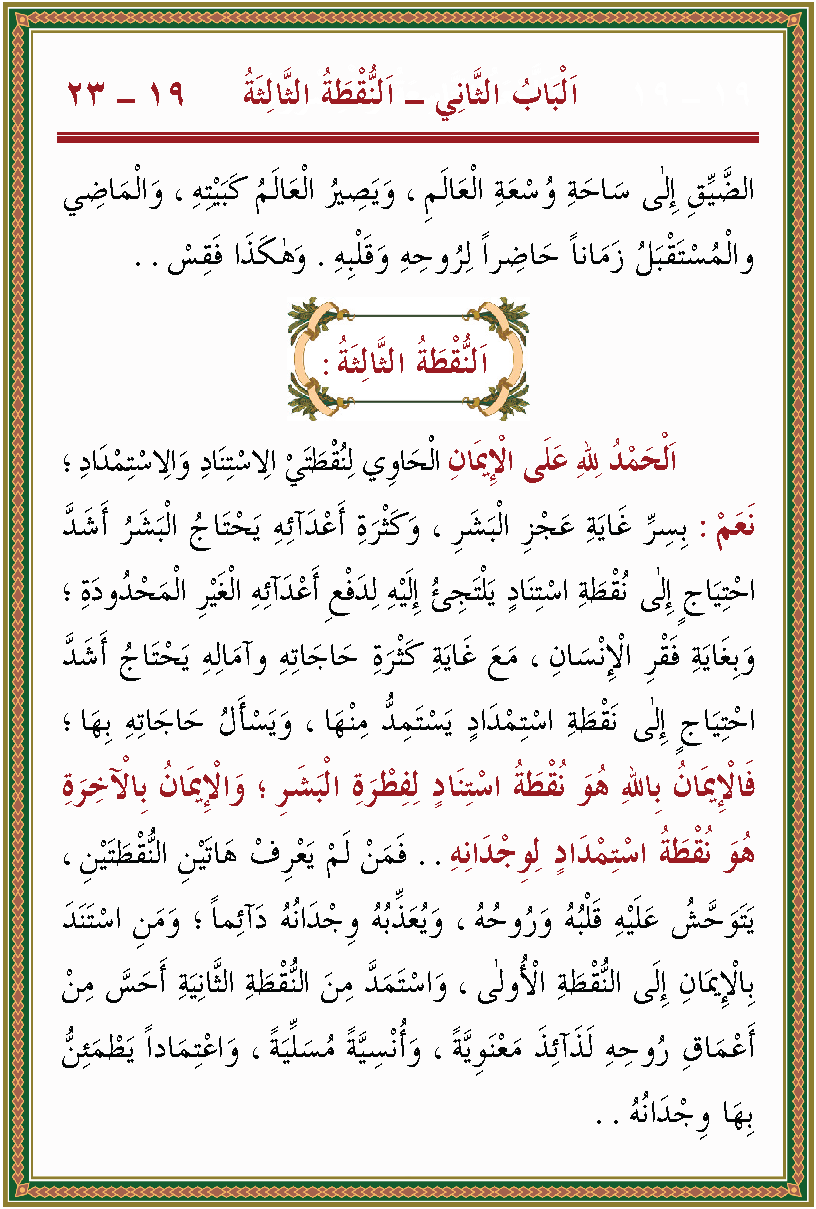 اَلْبَابُ الثَّانِي – اَلنُّقْطَةُ الثَّالِثَةُ ١٩ – ٢٣
الضَّيِّقِ إِلَى سَاحَةِ وُسْعَةِ الْعَالَمِ ، وَيَصِيرُ الْعَالَمُ كَبَيْتِهِ ، وَالْمَاضِي
والْمُسْتَقْبَلُ زَمَاناً حَاضِراً لِرُوحِهِ وَقَلْبِهِ . وَهٰكَذَا فَقِسْ . .
اَلنُّقْطَةُ الثَّالِثَةُ :
اَلْحَمْدُ لِلهِ عَلَى الْإِيمَانِ الْحَاوِي لِنُقْطَتَيْ الِاسْتِنَادِ وَالِاسْتِمْدَادِ ؛
نَعَمْ : بِسِرِّ غَايَةِ عَجْزِ الْبَشَرِ ، وَكَثْرَةِ أَعْدَآئِهِ يَحْتَاجُ الْبَشَرُ أَشَدَّ
احْتِيَاجٍ إِلٰى نُقْطَةِ اسْتِنَادٍ يَلْتَجِئُ إِلَيْهِ لِدَفْعِ أَعْدَآئِهِ الْغَيْرِ الْمَحْدُودَةِ ؛
وَبِغَايَةِ فَقْرِ الْإِنْسَانِ ، مَعَ غَايَةِ كَثْرَةِ حَاجَاتِهِ وآمَالِهِ يَحْتَاجُ أَشَدَّ
احْتِيَاجٍ إِلٰى نَقْطَةِ اسْتِمْدَادٍ يَسْتَمِدُّ مِنْهَا ، وَيَسْأَلُ حَاجَاتِهِ بِهَا ؛
فَالْإِيمَانُ بِاللهِ هُوَ نُقْطَةُ اسْتِنَادٍ لِفِطْرَةِ الْبَشَرِ ؛ وَالْإِيمَانُ بِالْآخِرَةِ
هُوَ نُقْطَةُ اسْتِمْدَادٍ لِوِجْدَانِهِ . . فَمَنْ لَمْ يَعْرِفْ هَاتَيْنِ النُّقْطَتَيْنِ ،
يَتَوَحَّشُ عَلَيْهِ قَلْبُهُ وَرُوحُهُ ، وَيُعَذِّبُهُ وِجْدَانُهُ دَآئِماً ؛ وَمَنِ اسْتَنَدَ
بِالْإِيمَانِ إِلَى النُّقْطَةِ الْأُولٰى ، وَاسْتَمَدَّ مِنَ النُّقْطَةِ الثَّانِيَةِ أَحَسَّ مِنْ
أَعْمَاقِ رُوحِهِ لَذَآئِذَ مَعْنَوِيَّةً ، وَأُنْسِيَّةً مُسَلِّيَةً ، وَاعْتِمَاداً يَطْمَئِنُّ
بِهَا وِجْدَانُهُ . .